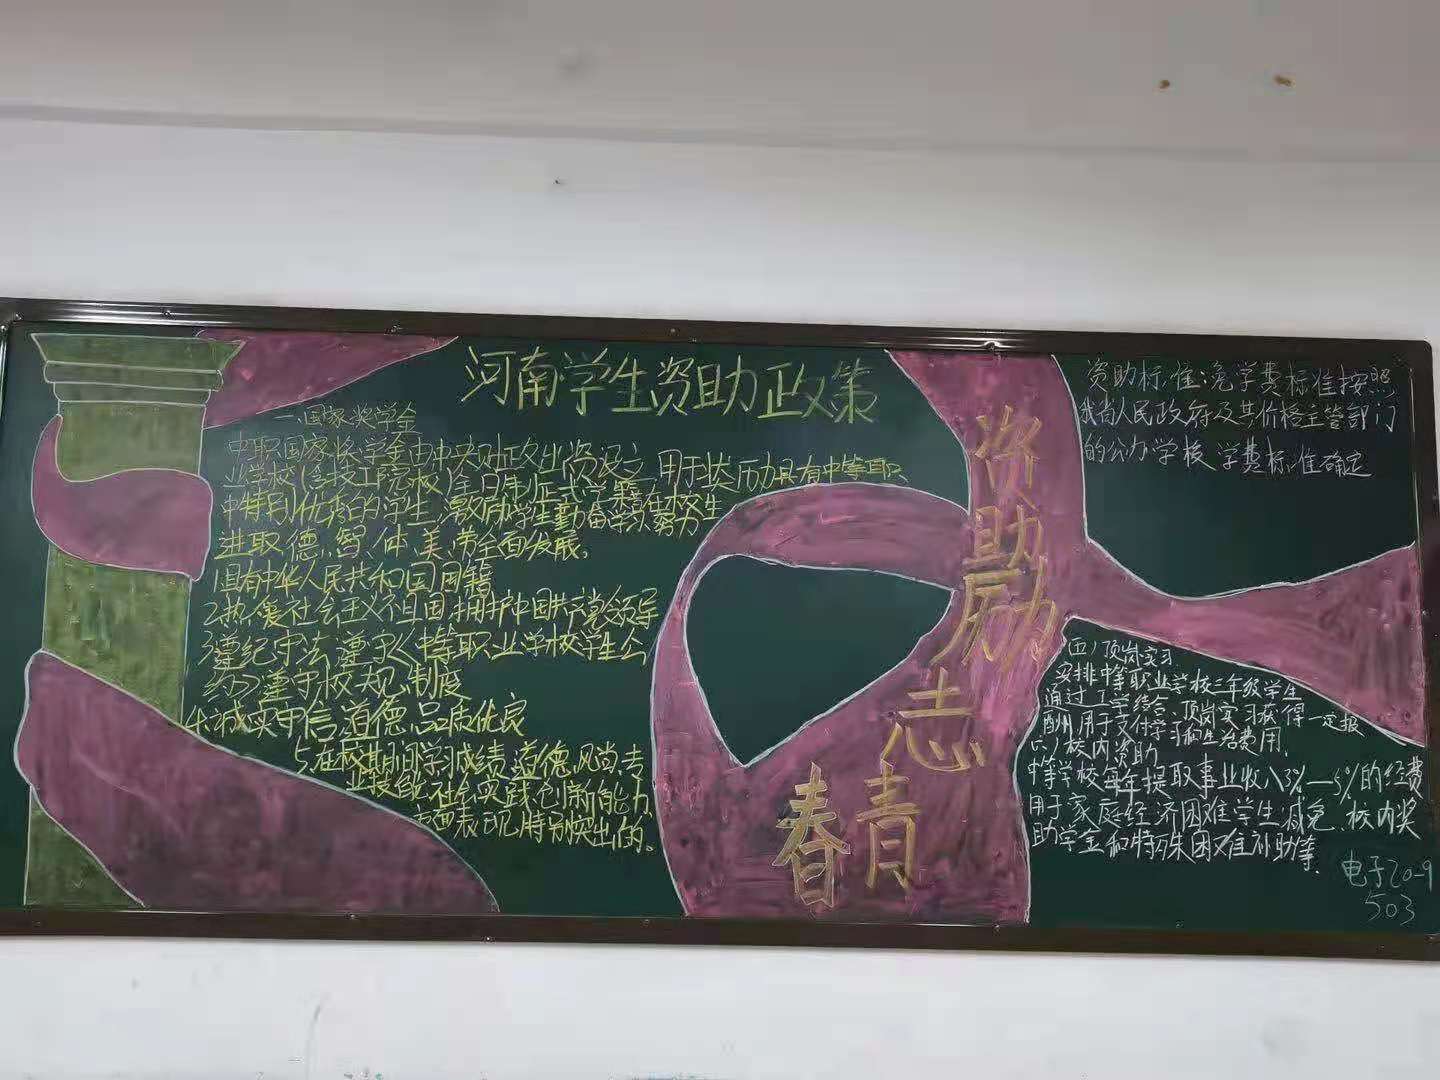 河南学生资助政策
一、国家奖学金
中职国家奖学金由中央财政出资设立,用于奖励具有中等职
业学校(含技工院校)全日制正式学籍在校生
中特别优秀的学生,激励学生勤奋学习、努力
进取,德、智、体、美、劳全面发展。
1.具有中华人民共和国国籍
2.热爱社会主义祖国,拥护中国共产党领导
3.遵纪守法,遵守《中等职业学校学生公
约》遵守校规、制度
4.诚实守信,道德品质优良
5.在校期间学习成绩、道德风尚、专
业技能、社会实践、创新能力、
方面表现特别突出的。
资助励志青春
资助标准:免学费标准按照
我省人民政府及其价格主管部门
的公办学校学费标准确定
(五)顶岗实习
安排中等职业学校三年级学生
通过工学结合、顶岗实习获得一定报
酬,用于支付学习和生活费用.
六)校内资助
中等学校每年提取事业收入3%—5%的经费
用于家庭经济困难学生减免、校内奖
助学金和特殊困难补助等.
电子20-9
503